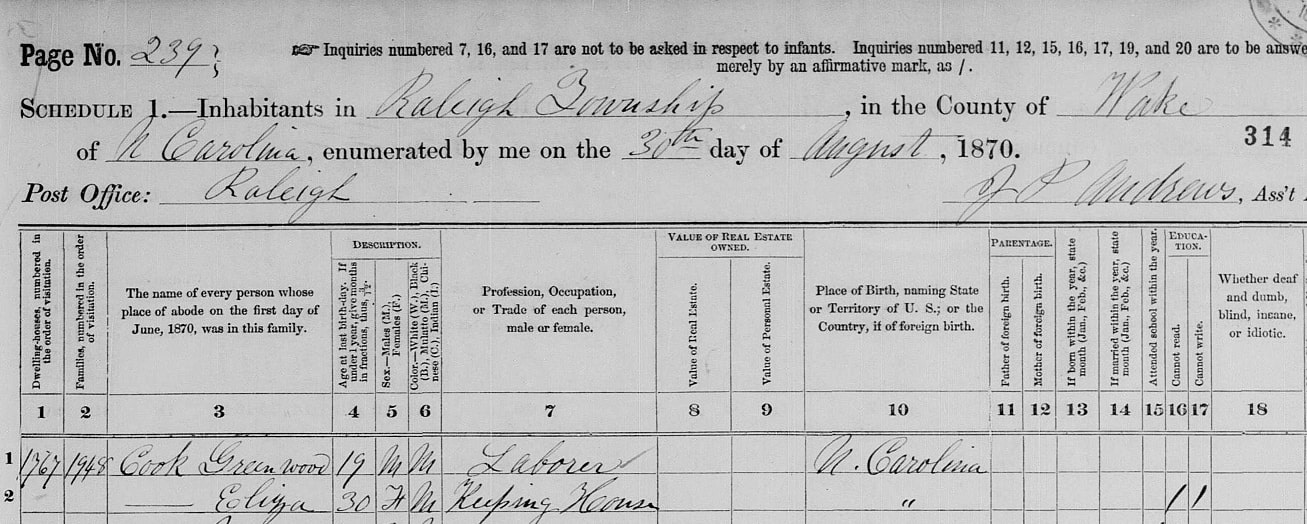 Page No. 239
☞ Inquiries numbered 7, 16, and 17 are not to be asked in respect to infants. Inquiries numbered 11, 12, 15, 16, 17, 19, and 20 are to be answe
merely by an affirmative mark, as /.
SCHEDULE 1.—Inhabitants in Raleigh Township, in the County of Wake
of N Carolina, enumerated by me on the 30th day of August, 1870.
314
Post Office: Raleigh
J P Andrews, Ass't
Dwelling-houses, numbered in the order of visitation.
Families, numbered in the order of visitation.
The name of every person whose place of abode on the first day of June, 1870, was in this family.
DESCRIPTION.
Age at last birth-day. If under 1 year, give months in fractions, thus, 3/12.
Sex.—Males (M.), Females (F.)
Color.—White (W.), Black (B.), Mulatto (M.), Chinese (C.), Indian (I.)
Profession, Occupation, or Trade of each person, male or female.
VALUE OF REAL ESTATE OWNED.
Value of Real Estate.
Value of Personal Estate.
Place of Birth, naming State or Territory of U. S.; or the Country, if of foreign birth.
PARENTAGE.
Father of foreign birth.
Mother of foreign birth.
If born within the year, state month (Jan., Feb., &c.)
If married within the year, state month (Jan., Feb., &c.)
Attended school within the year.
EDUCATION.
Cannot read.
Cannot write.
Whether deaf and dumb, blind, insane, or idiotic.
1 2 3 4 5 6 7 8 9 10 11 12 13 14 15 16 17 18
1 1767 1948 Cook Greenwood 19 M M Laborer N. Carolina
2 —— Eliza 30 F M Keeping House " / /